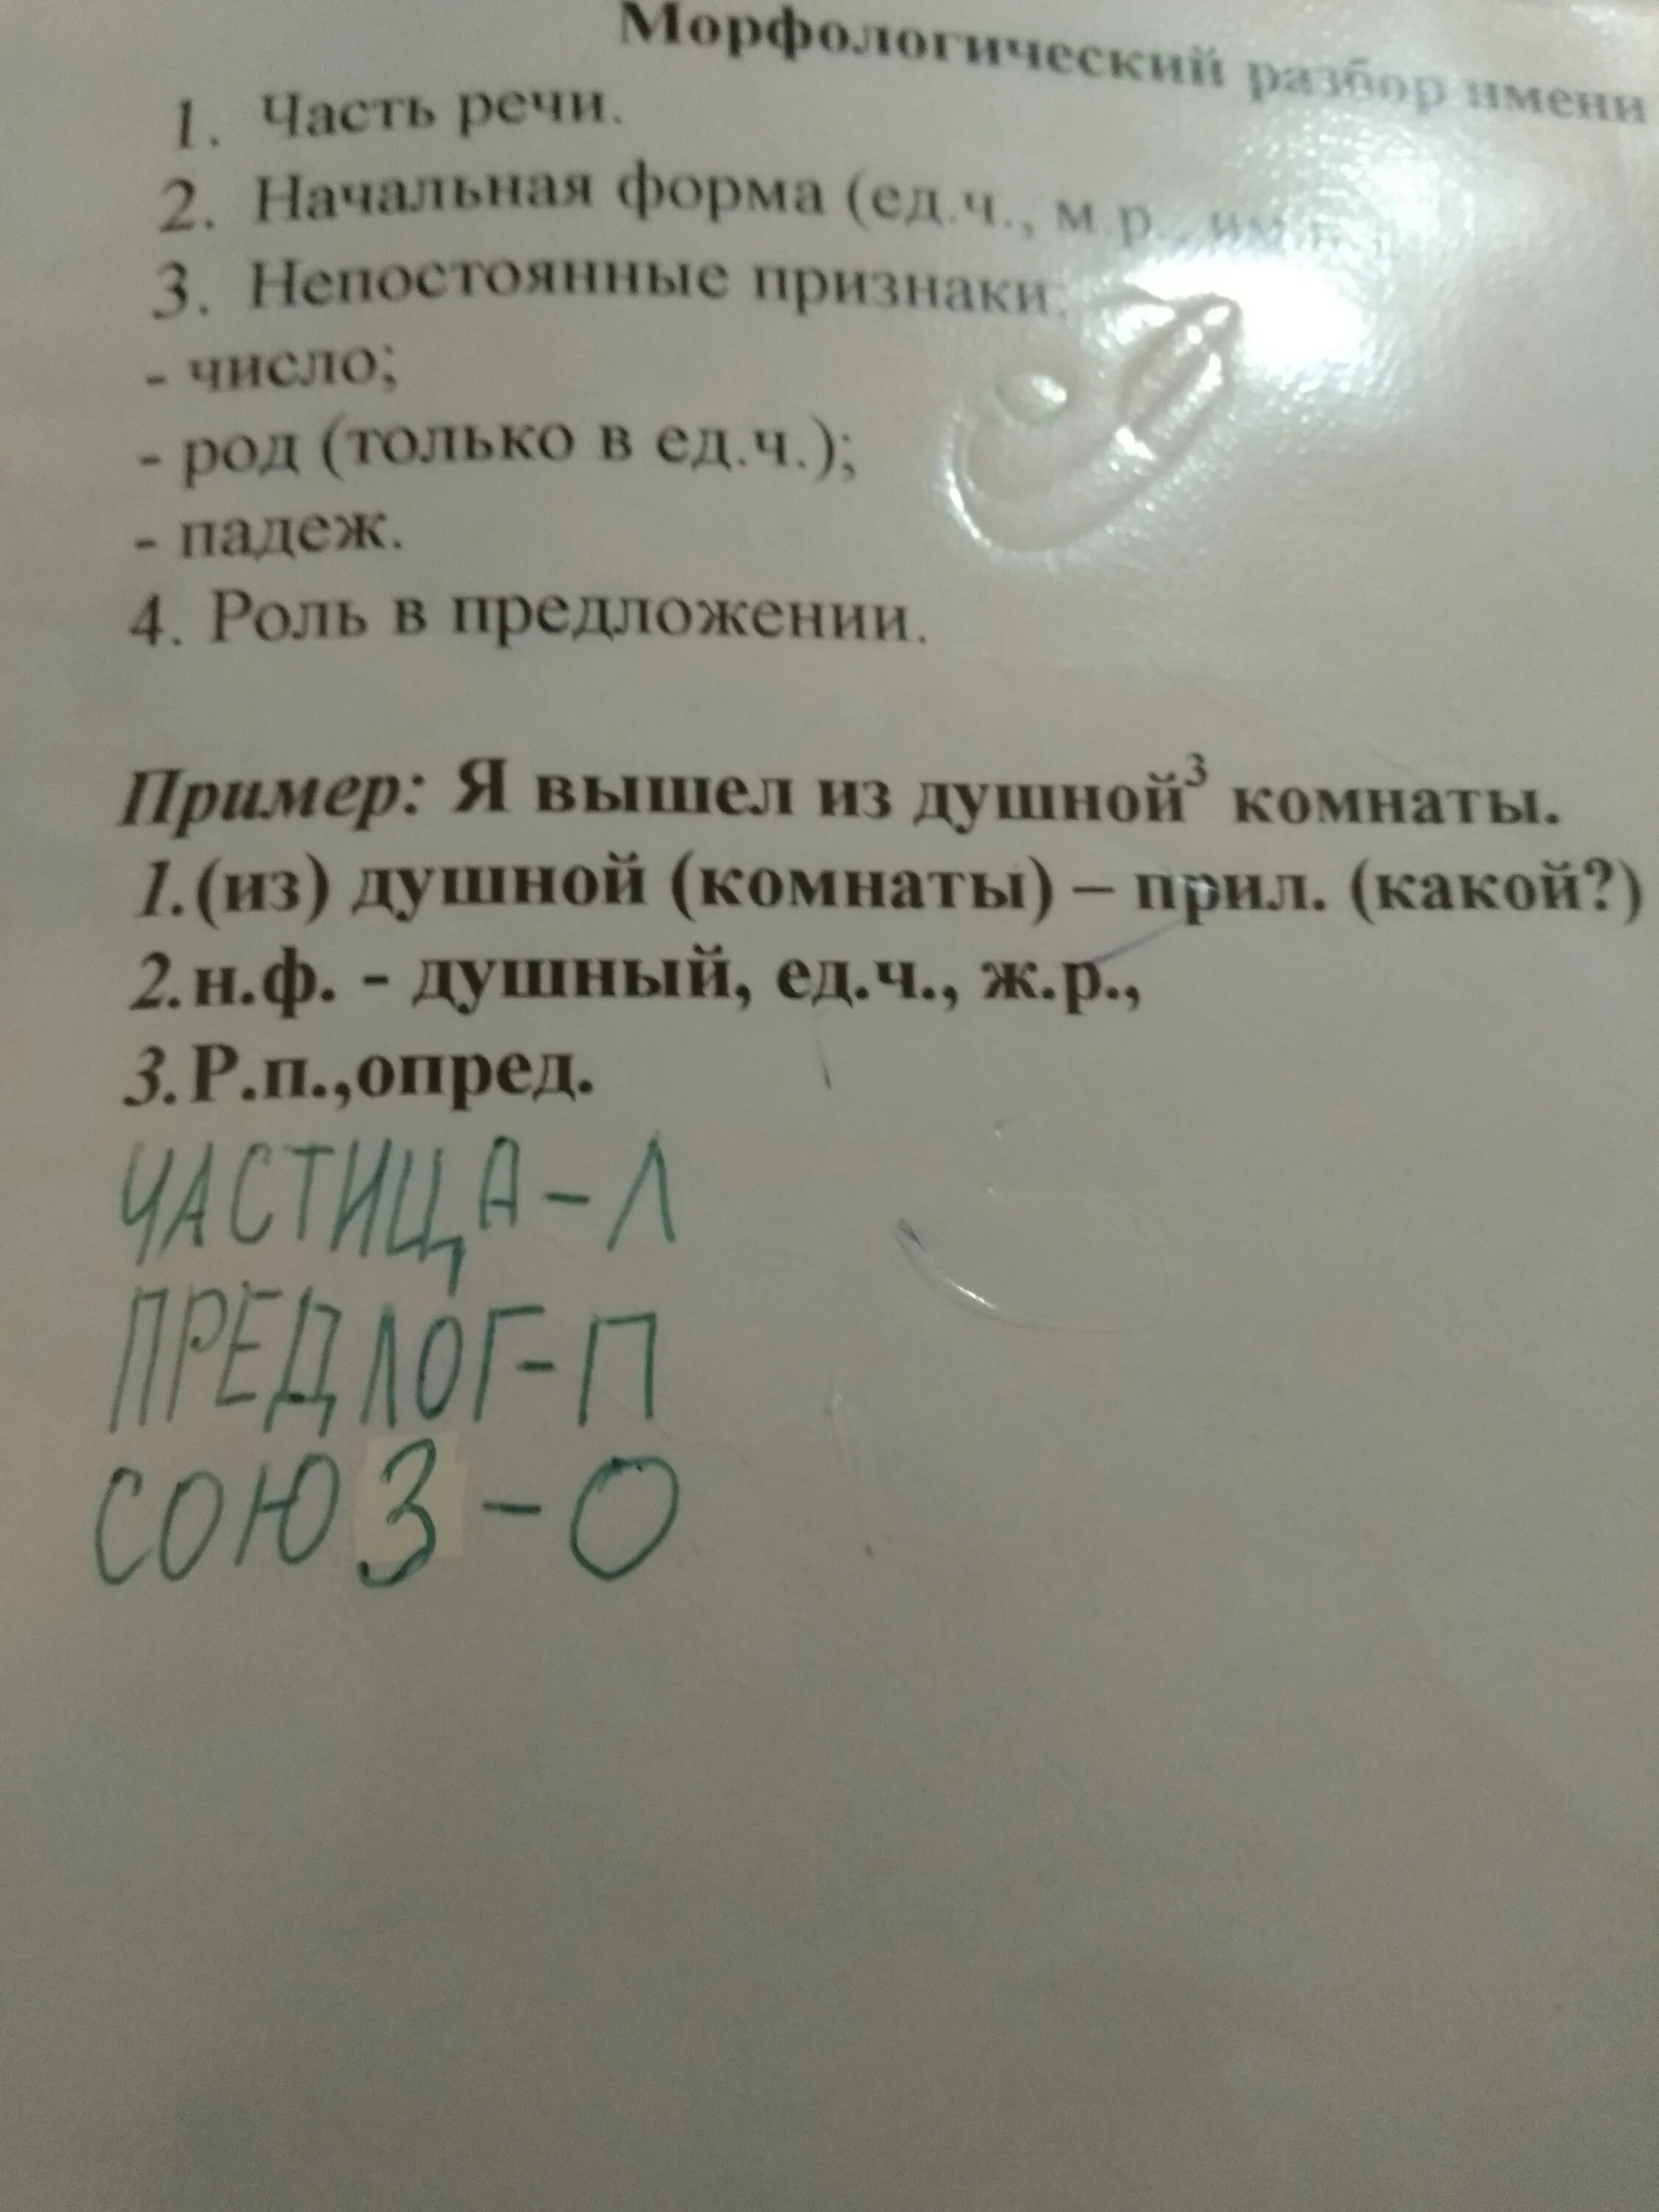 Морфологический разбор имени
1. Часть речи.
2. Начальная форма (ед.ч., м.р., им.п.
3. Непостоянные признаки:
- число;
- род (только в ед.ч.);
- падеж.
4. Роль в предложении.
Пример: Я вышел из душной³ комнаты.
1.(из) душной (комнаты) – прил. (какой?)
2.н.ф. - душный, ед.ч., ж.р.,
3.Р.п.,опред.
ЧАСТИЦА-Л
ПРЕДЛОГ-П
СОЮЗ-О